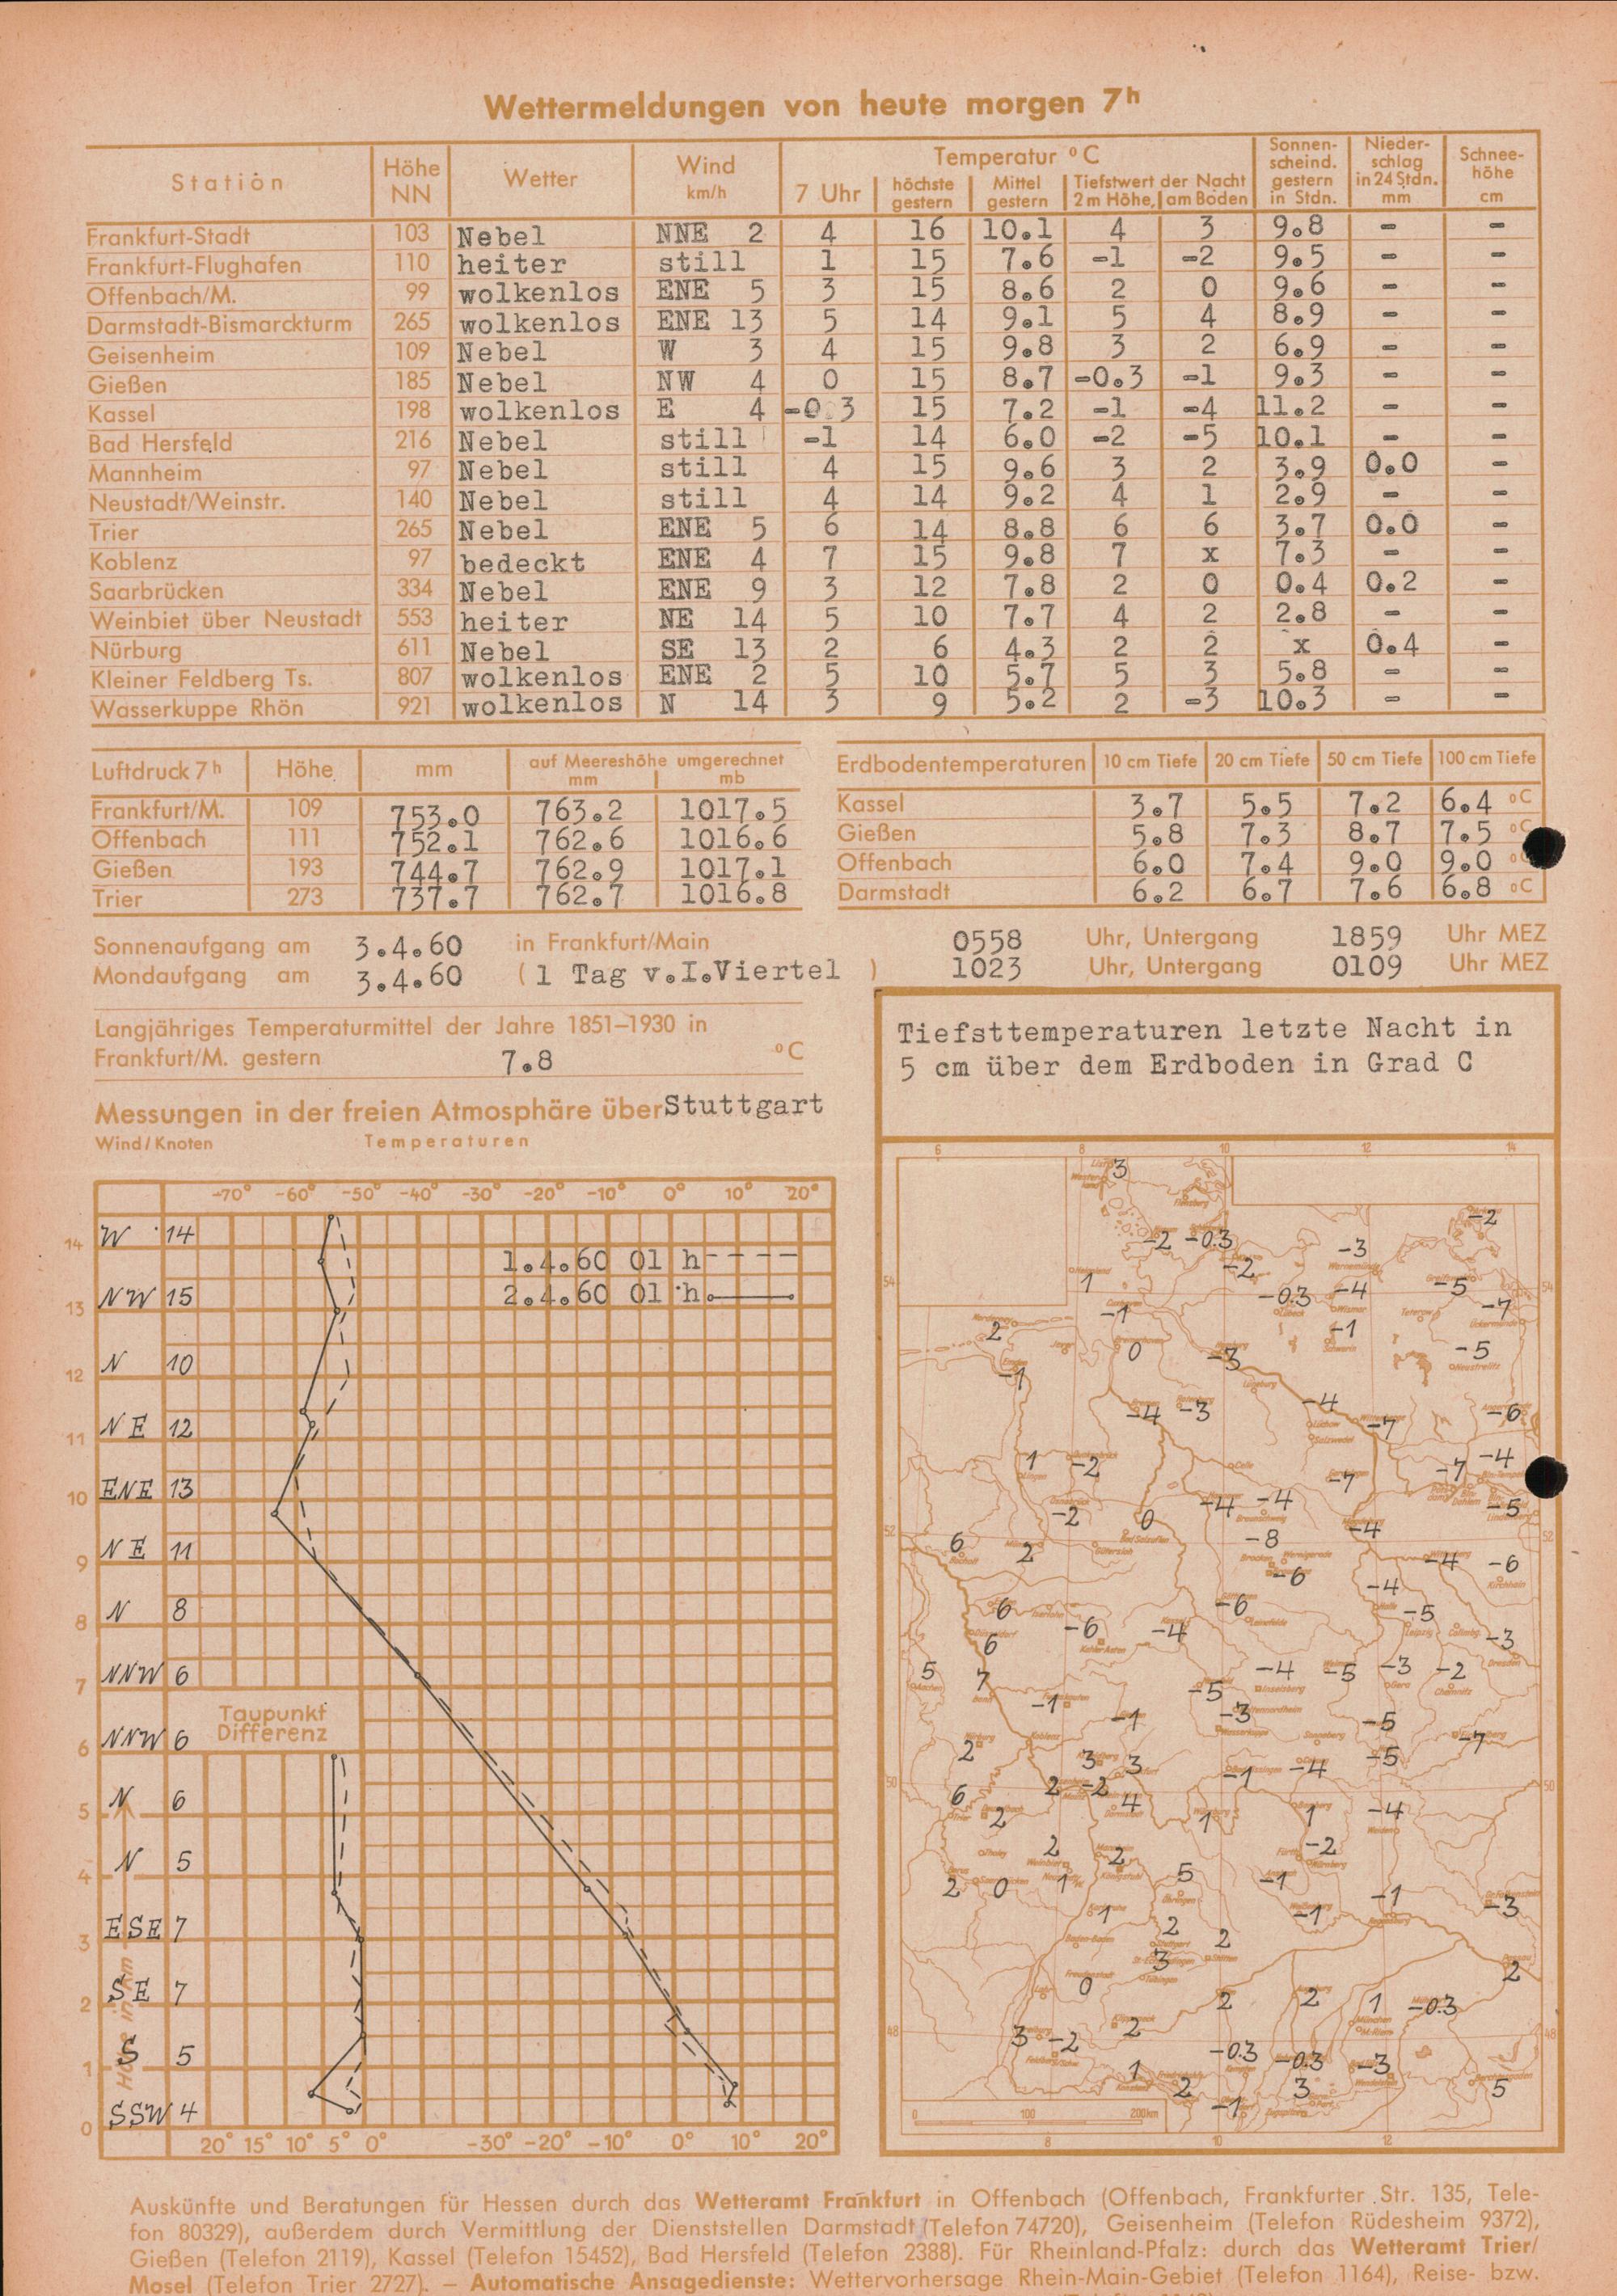 Wettermeldungen von heute morgen 7h
Station Höhe NN Wetter Wind km/h Temperatur °C Sonnenscheind. gestern in Stdn. Niederschlag in 24 Stdn. mm Schneehöhe cm
7 Uhr höchste gestern Mittel gestern Tiefstwert der Nacht 2 m Höhe, am Boden
Frankfurt-Stadt 103 Nebel NNE 2 4 16 10.1 4 3 9.8 - -
Frankfurt-Flughafen 110 heiter still 1 15 7.6 -1 -2 9.5 - -
Offenbach/M. 99 wolkenlos ENE 5 3 15 8.6 2 0 9.6 - -
Darmstadt-Bismarckturm 265 wolkenlos ENE 13 5 14 9.1 5 4 8.9 - -
Geisenheim 109 Nebel W 3 4 15 9.8 3 2 6.9 - -
Gießen 185 Nebel NW 4 0 15 8.7 -0.3 -1 9.3 - -
Kassel 198 wolkenlos E 4 -0.3 15 7.2 -1 -4 11.2 - -
Bad Hersfeld 216 Nebel still -1 14 6.0 -2 -5 10.1 - -
Mannheim 97 Nebel still 4 15 9.6 3 2 3.9 0.0 -
Neustadt/Weinstr. 140 Nebel still 4 14 9.2 4 1 2.9 - -
Trier 265 Nebel ENE 5 6 14 8.8 6 6 3.7 0.0 -
Koblenz 97 bedeckt ENE 4 7 15 9.8 7 x 7.3 - -
Saarbrücken 334 Nebel ENE 9 3 12 7.8 2 0 0.4 0.2 -
Weinbiet über Neustadt 553 heiter NE 14 5 10 7.7 4 2 2.8 - -
Nürburg 611 Nebel SE 13 2 6 4.3 2 2 x 0.4 -
Kleiner Feldberg Ts. 807 wolkenlos ENE 2 5 10 5.7 5 3 5.8 - -
Wasserkuppe Rhön 921 wolkenlos N 14 3 9 5.2 2 -3 10.3 - -
Luftdruck 7h Höhe mm auf Meereshöhe umgerechnet mm mb
Frankfurt/M. 109 753.0 763.2 1017.5
Offenbach 111 752.1 762.6 1016.6
Gießen 193 744.7 762.9 1017.1
Trier 273 737.7 762.7 1016.8
Erdbodentemperaturen 10 cm Tiefe 20 cm Tiefe 50 cm Tiefe 100 cm Tiefe
Kassel 3.7 5.5 7.2 6.4 °C
Gießen 5.8 7.3 8.7 7.5 °C
Offenbach 6.0 7.4 9.0 9.0 °
Darmstadt 6.2 6.7 7.6 6.8 °C
Sonnenaufgang am 3.4.60 in Frankfurt/Main 0558 Uhr, Untergang 1859 Uhr MEZ
Mondaufgang am 3.4.60 (1 Tag v.I.Viertel ) 1023 Uhr, Untergang 0109 Uhr MEZ
Langjähriges Temperaturmittel der Jahre 1851–1930 in
Frankfurt/M. gestern 7.8 °C
Messungen in der freien Atmosphäre über Stuttgart
Wind/Knoten Temperaturen
-70° -60° -50° -40° -30° -20° -10° 0° 10° 20°
14 W 14
1.4.60 01 h
13 NW 15
2.4.60 01 h
12 N 10
11 NE 12
10 ENE 13
9 NE 11
8 N 8
7 NNW 6
Taupunkt
Differenz
6 NNW 6
5 N 6
4 N 5
3 ESE 7
2 SE 7
1 S 5
0 SSW 4
Höhe in km
20° 15° 10° 5° 0° -30° -20° -10° 0° 10° 20°
Tiefsttemperaturen letzte Nacht in
5 cm über dem Erdboden in Grad C
6 8 10 12 14
3
-2
-2 -0.3 -3
-2
1 -0.3 -4 -5
54 54
-1 -7
2 -1
0 -3 -5
-1
-4 -3 -4 -7 -6
1 -2 -7 -7 -4
-2 0 -4 -4 -4 -5
52 52
6 2 -8 -4 -6
-6
-4
6 -6 -4 -6 -5
6 -3
5 7 -5 -4 -5 -3 -2
-1 -1 -3 -5
2 3 3 -1 -4 -5 -7
50 50
6 2 2 -2 4 1 1 -4
2 2 -2
2 0 1 5 -1 -1 -3
1 2 2 -1
3
0 2 2 1 -0.3 2
48 48
3 -2 2
1 -0.3 -0.3 -3
2 -1 3 5
0 100 200 km
8 10 12
Auskünfte und Beratungen für Hessen durch das Wetteramt Frankfurt in Offenbach (Offenbach, Frankfurter Str. 135, Tele-
fon 80329), außerdem durch Vermittlung der Dienststellen Darmstadt (Telefon 74720), Geisenheim (Telefon Rüdesheim 9372),
Gießen (Telefon 2119), Kassel (Telefon 15452), Bad Hersfeld (Telefon 2388). Für Rheinland-Pfalz: durch das Wetteramt Trier/
Mosel (Telefon Trier 2727). – Automatische Ansagedienste: Wettervorhersage Rhein-Main-Gebiet (Telefon 1164), Reise- bzw.